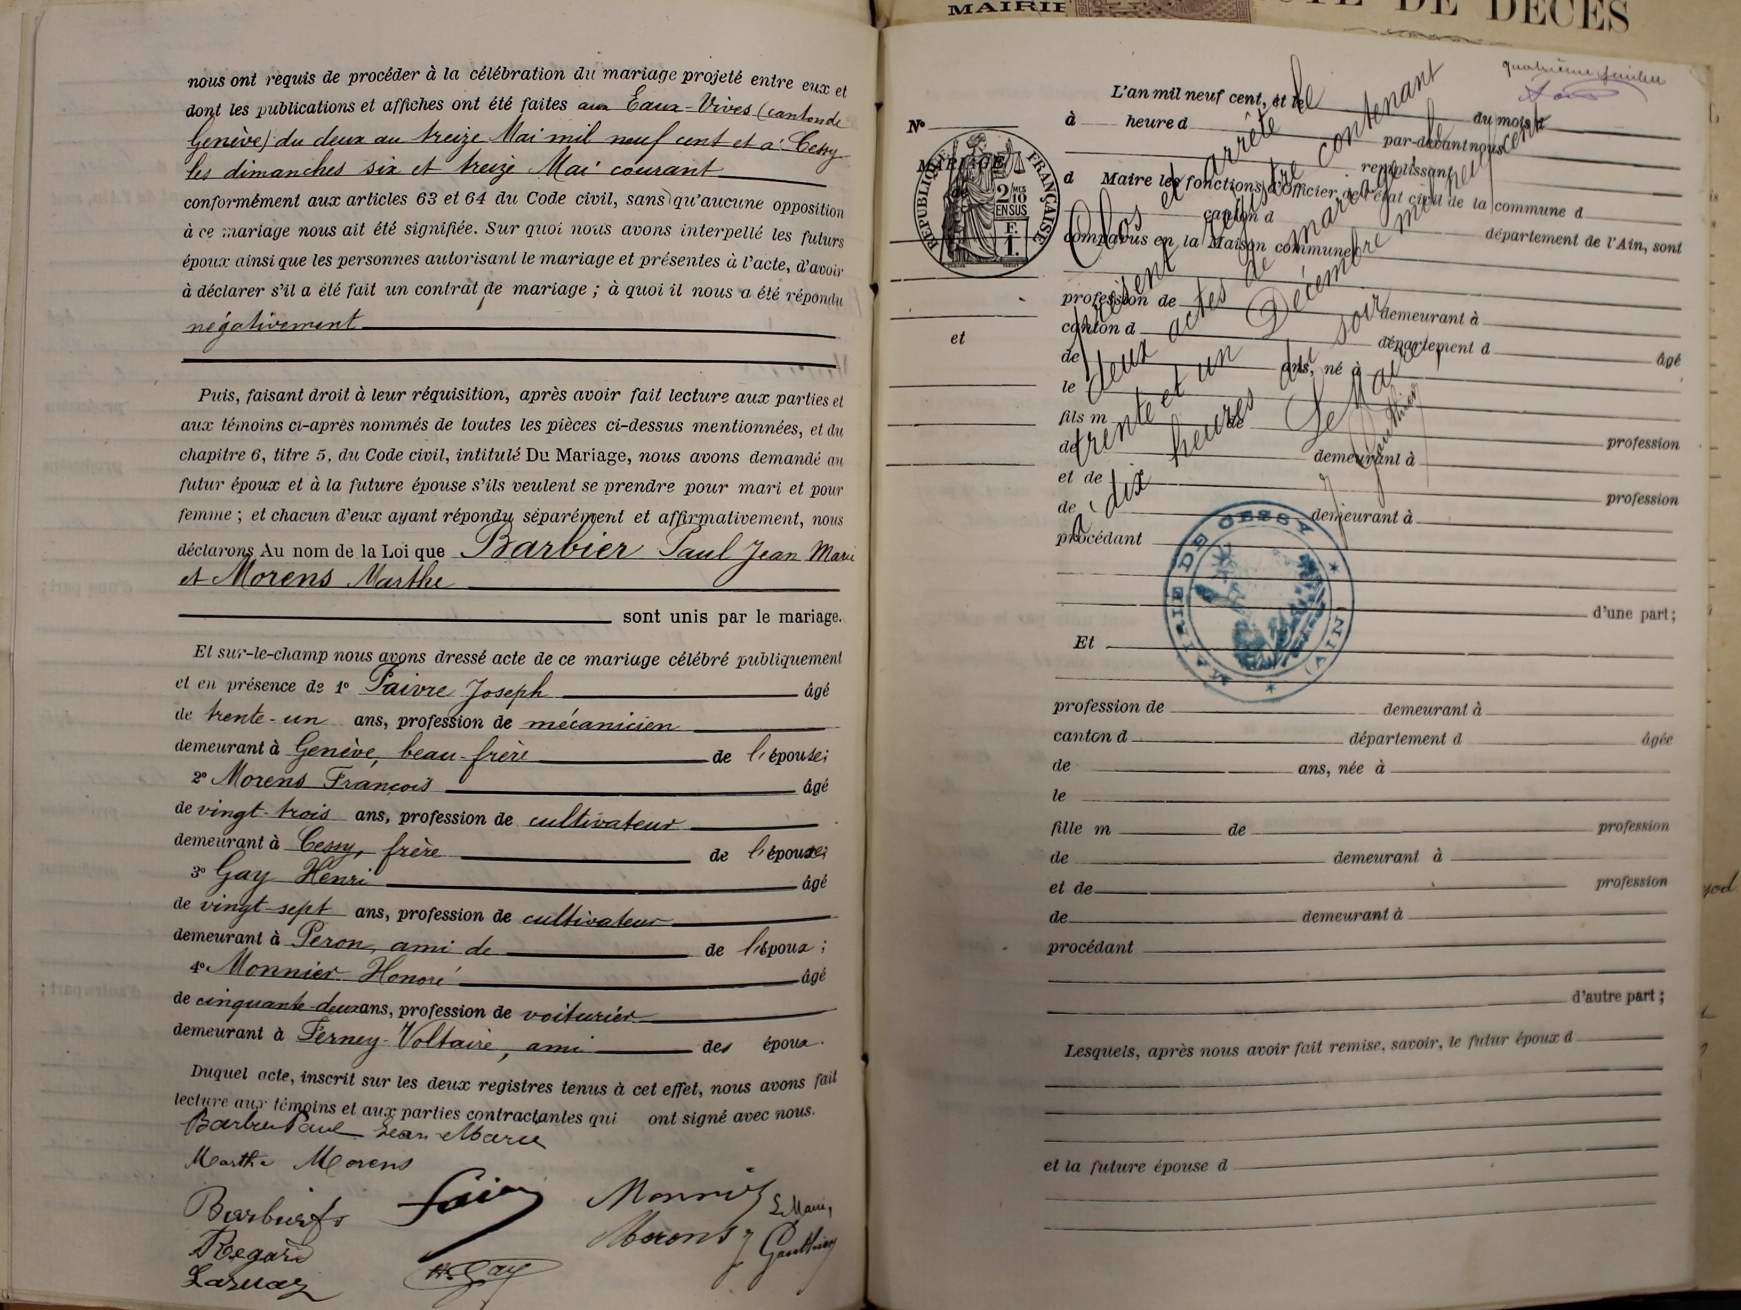 nous ont requis de procéder à la célébration du mariage projeté entre eux et
dont les publications et affiches ont été faites aux Eaux-Vives (canton de
Genève) du deux au treize Mai mil neuf cent et à Cessy
les dimanches six et treize Mai courant
conformément aux articles 63 et 64 du Code civil, sans qu'aucune opposition
à ce mariage nous ait été signifiée. Sur quoi nous avons interpellé les futurs
époux ainsi que les personnes autorisant le mariage et présentes à l'acte, d'avoir
à déclarer s'il a été fait un contrat de mariage ; à quoi il nous a été répondu
négativement
Puis, faisant droit à leur réquisition, après avoir fait lecture aux parties et
aux témoins ci-après nommés de toutes les pièces ci-dessus mentionnées, et du
chapitre 6, titre 5, du Code civil, intitulé Du Mariage, nous avons demandé au
futur époux et à la future épouse s'ils veulent se prendre pour mari et pour
femme ; et chacun d'eux ayant répondu séparément et affirmativement, nous
déclarons Au nom de la Loi que Barbier Paul Jean Marie
et Morens Marthe
sont unis par le mariage.
Et sur-le-champ nous avons dressé acte de ce mariage célébré publiquement
et en présence de 1° Faivre Joseph âgé
de trente-un ans, profession de mécanicien
demeurant à Genève, beau-frère de l'épouse;
2° Morens François âgé
de vingt-trois ans, profession de cultivateur
demeurant à Cessy, frère de l'épouse;
3° Gay Henri âgé
de vingt-sept ans, profession de cultivateur
demeurant à Péron, ami de de l'époux ;
4° Monnier Honoré âgé
de cinquante-deux ans, profession de voiturier
demeurant à Ferney-Voltaire, ami des époux.
Duquel acte, inscrit sur les deux registres tenus à cet effet, nous avons fait
lecture aux témoins et aux parties contractantes qui ont signé avec nous.
Barbier Paul Jean Marie
Marthe Morens
Monnier
Le Maire,
Morens
Gauthier
Regard
H. Gay
MAIRIE
DE DÉCÈS
quatrième Juillet
L'an mil neuf cent, et le du mois d
N°
à heure d par-devant nous
MARIAGE
de
RÉPUBLIQUE FRANÇAISE
2/10 MES
EN SUS
F.
1.
remplissant
d Maire les fonctions d'Officier de l'état civil de la commune d
canton d département de l'Ain, sont
comparus en la Maison commune
profession de demeurant à
canton d département d âgé
et
de ans, né à
le
fils m de
de demeurant à profession
et de
de demeurant à profession
procédant
d'une part;
Clos et arrêté le
présent registre contenant
deux actes de mariage le
trente et un Décembre mil neuf cent
à dix heures du soir
Le Maire,
Gauthier
MAIRIE DE CESSY
(AIN)
Et
profession de demeurant à
canton d département d âgée
de ans, née à
le
fille m de profession
de demeurant à
et de profession
de demeurant à
procédant
d'autre part ;
Lesquels, après nous avoir fait remise, savoir, le futur époux d
et la future épouse d